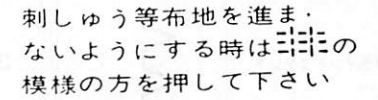 刺しゅう等布地を進ま
ないようにする時はの
模様の方を押して下さい